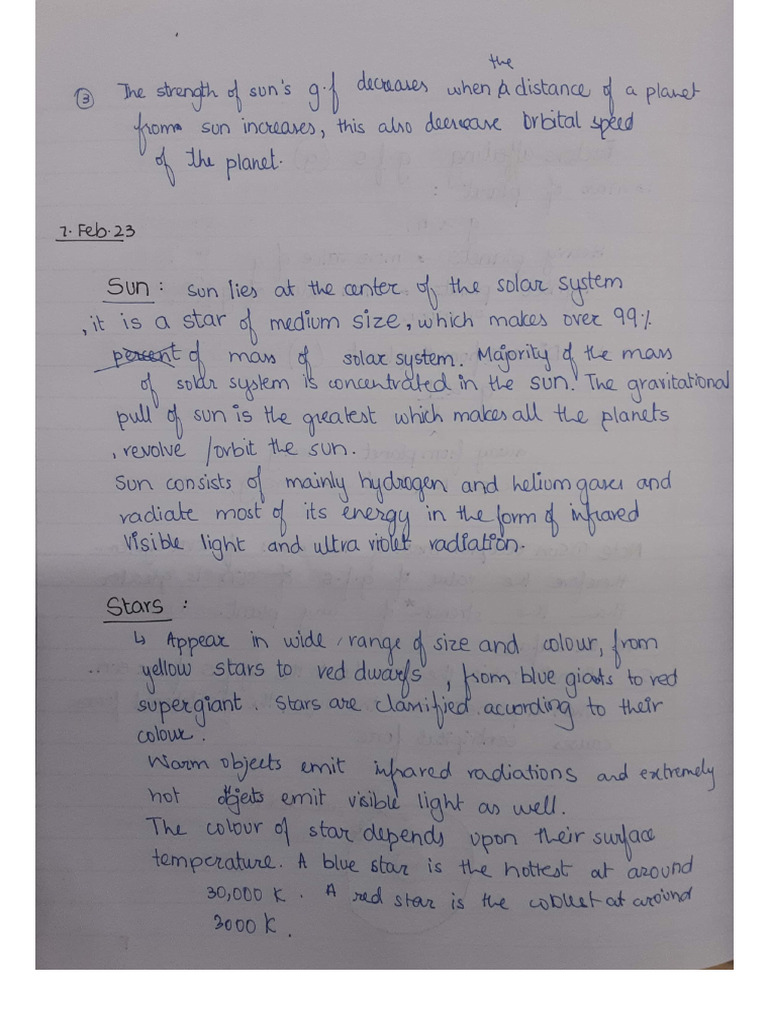 the
③ The strength of sun's g.f decreases when a distance of a planet
from sun increases, this also decrease orbital speed
of the planet.
7. Feb. 23
Sun : sun lies at the center of the solar system
, it is a star of medium size, which makes over 99%
percent of mass of solar system. Majority of the mass
of solar system is concentrated in the sun. The gravitational
pull of sun is the greatest which makes all the planets
, revolve /orbit the sun.
Sun consists of mainly hydrogen and helium gases and
radiate most of its energy in the form of infrared
visible light and ultra violet radiation.
Stars :
↳ Appear in wide range of size and colour, from
yellow stars to red dwarfs , from blue giants to red
supergiant. Stars are classified according to their
colour.
Warm objects emit infrared radiations and extremely
hot objects emit visible light as well.
The colour of star depends upon their surface
temperature. A blue star is the hottest at around
30,000 K . A red star is the collest at around
3000 K .